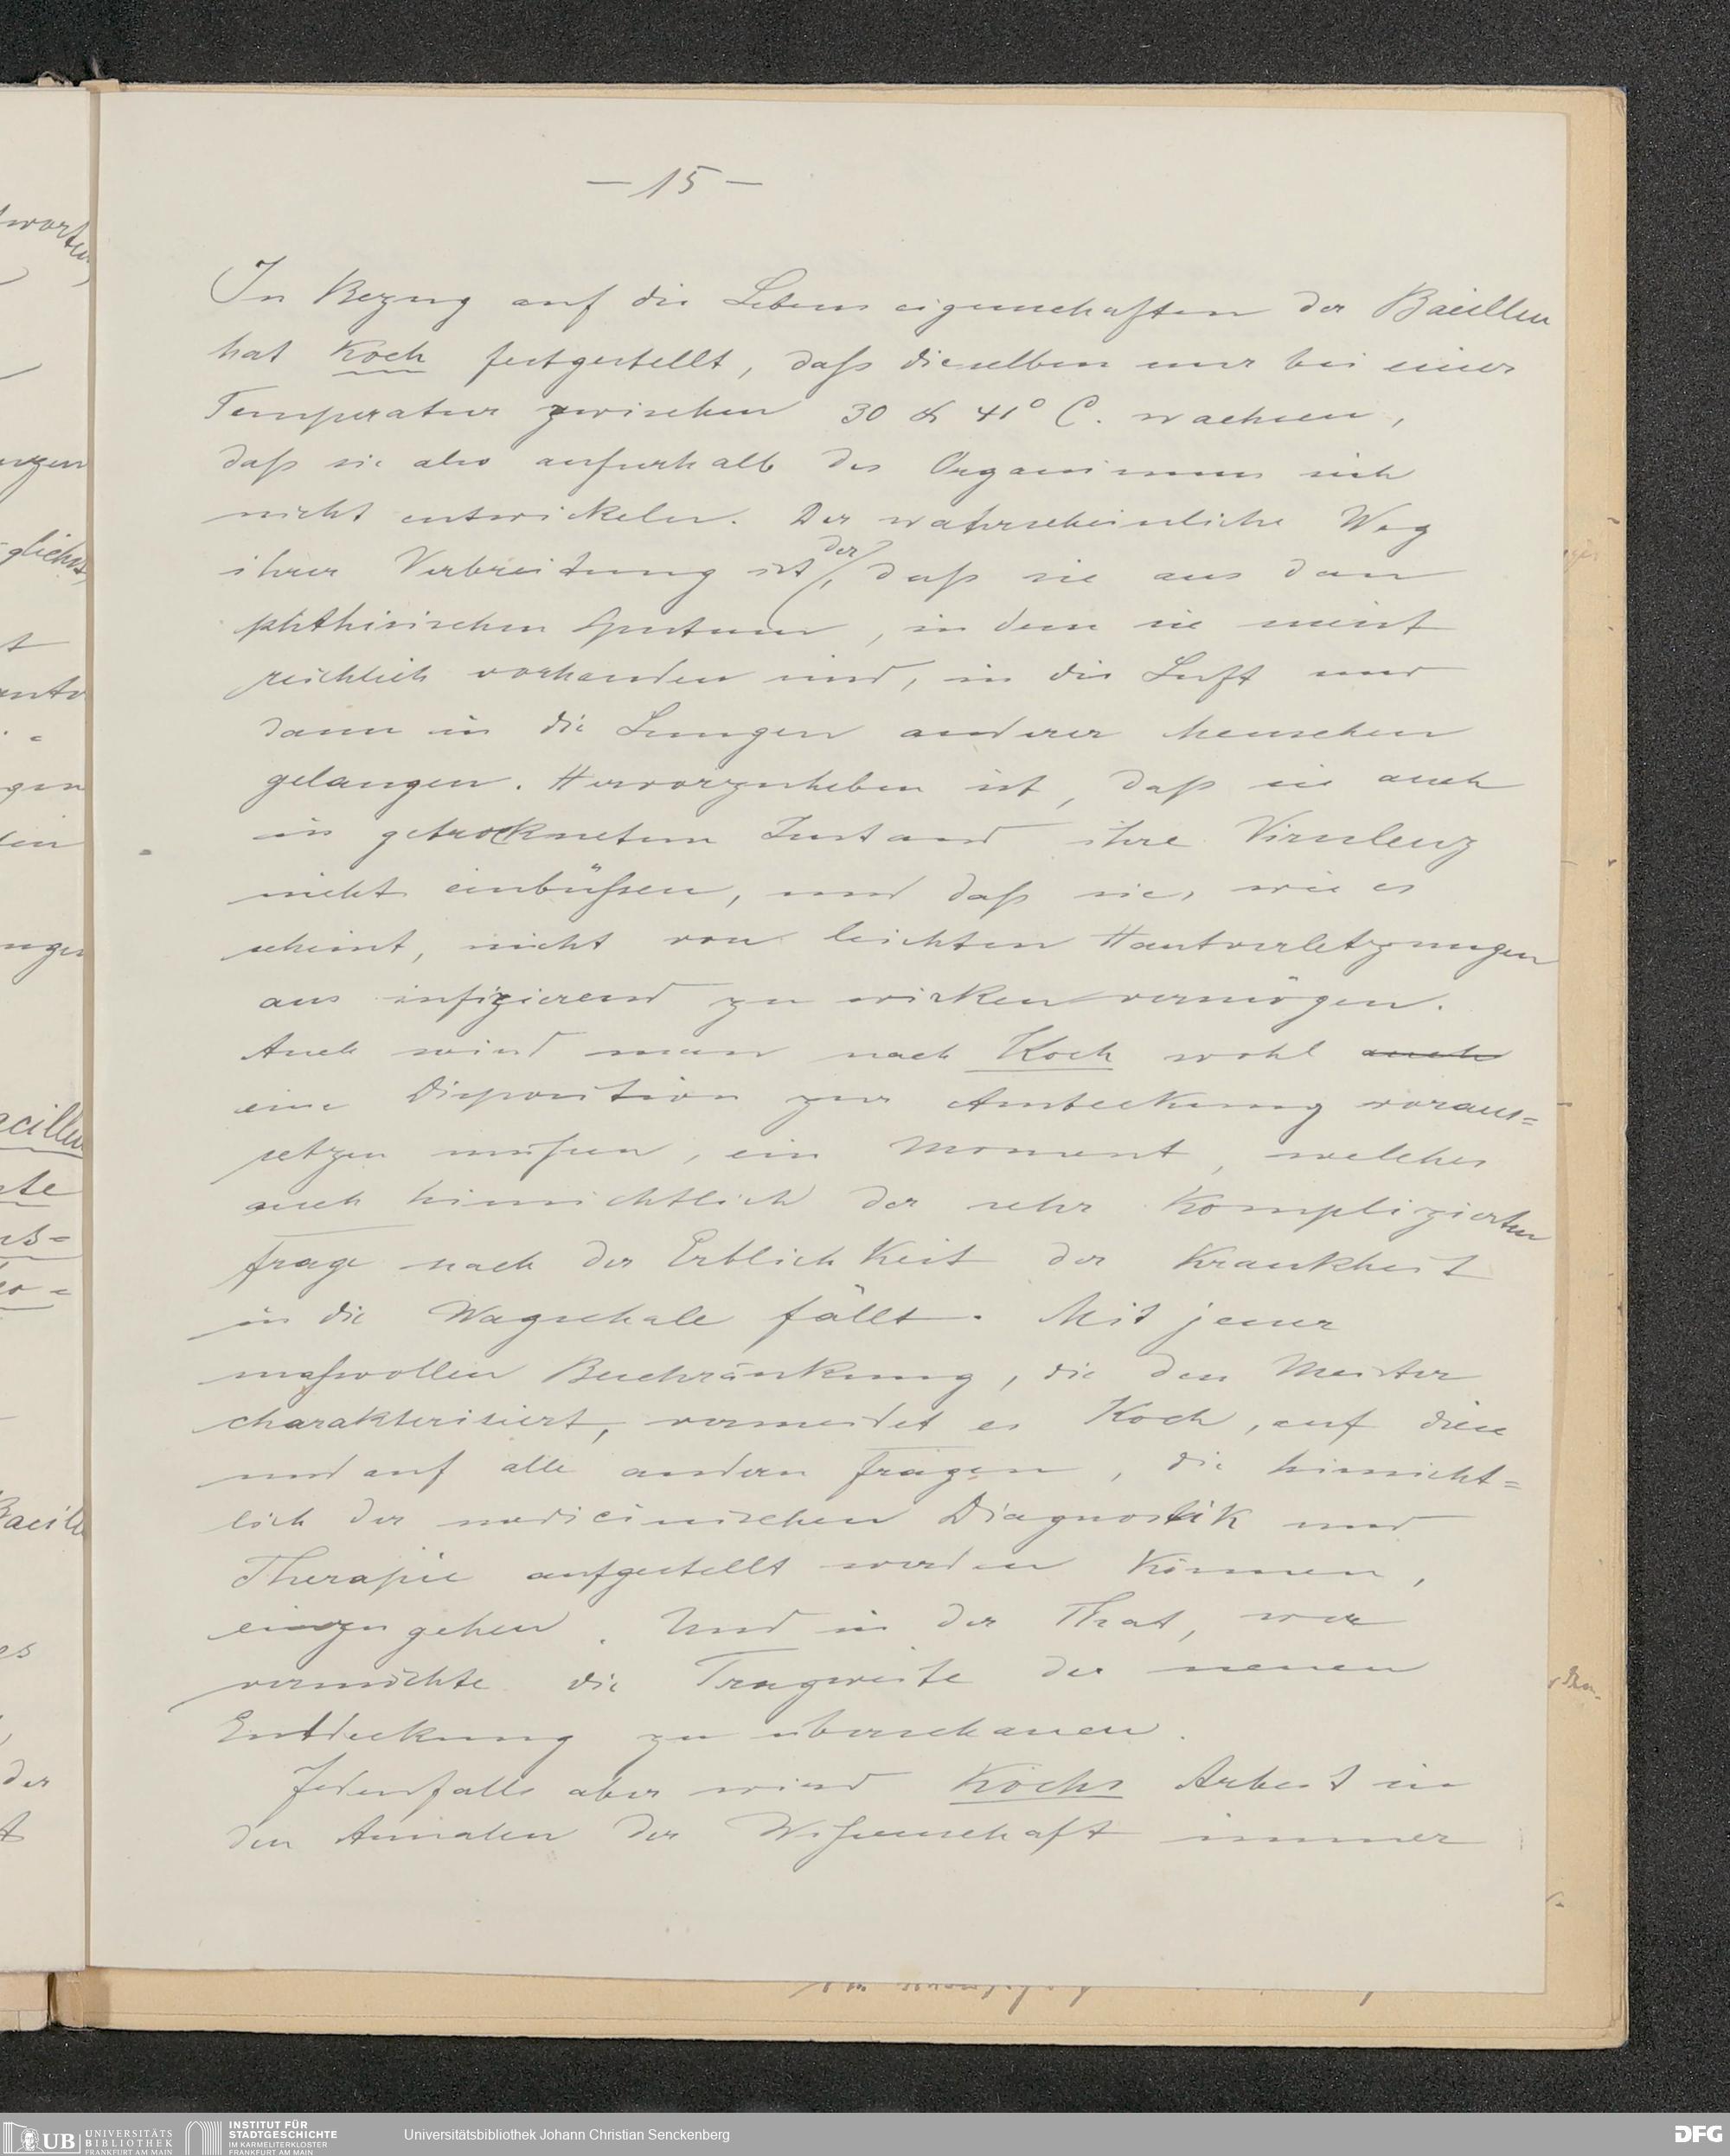 — 15 —
In Bezug auf die Lebenseigenschaften der Bacillen
hat Koch festgestellt, daß dieselben nur bei einer
Temperatur zwischen 30 & 41° C. wachsen,
daß sie also außerhalb des Organismus sich
nicht entwickeln. Der wahrscheinliche Weg
ihrer Verbreitung ist der, daß sie aus dem
phthisischen Sputum, in dem sie meist
reichlich vorhanden sind, in die Luft und
dann in die Lungen anderer Menschen
gelangen. Hervorzuheben ist, daß sie auch
in getrocknetem Zustand ihre Virulenz
nicht einbüßen, und daß sie, wie es
scheint, nicht von leichten Hautverletzungen
aus infizierend zu wirken vermögen.
Auch wird man nach Koch wohl auch
eine Disposition zur Ansteckung voraus=
setzen müßen, ein Moment, welches
auch hinsichtlich der sehr komplizierten
Frage nach der Erblichkeit der Krankheit
in die Wagschale fällt. Mit jener
maßvollen Beschränkung, die den Meister
charakterisiert, vermeidet es Koch, auf diese
und auf alle andern Fragen, die hinsicht=
lich der medicinischen Diagnostik und
Therapie aufgestellt werden können,
einzugehen. Und in der That, wer
vermöchte die Tragweite der neuen
Entdeckung zu überschauen.
Jedenfalls aber wird Kochs Arbeit in
den Annalen der Wißenschaft immer
UB UNIVERSITÄTS
BIBLIOTHEK
FRANKFURT AM MAIN
INSTITUT FÜR
STADTGESCHICHTE
IM KARMELITERKLOSTER
FRANKFURT AM MAIN
Universitätsbibliothek Johann Christian Senckenberg
DFG